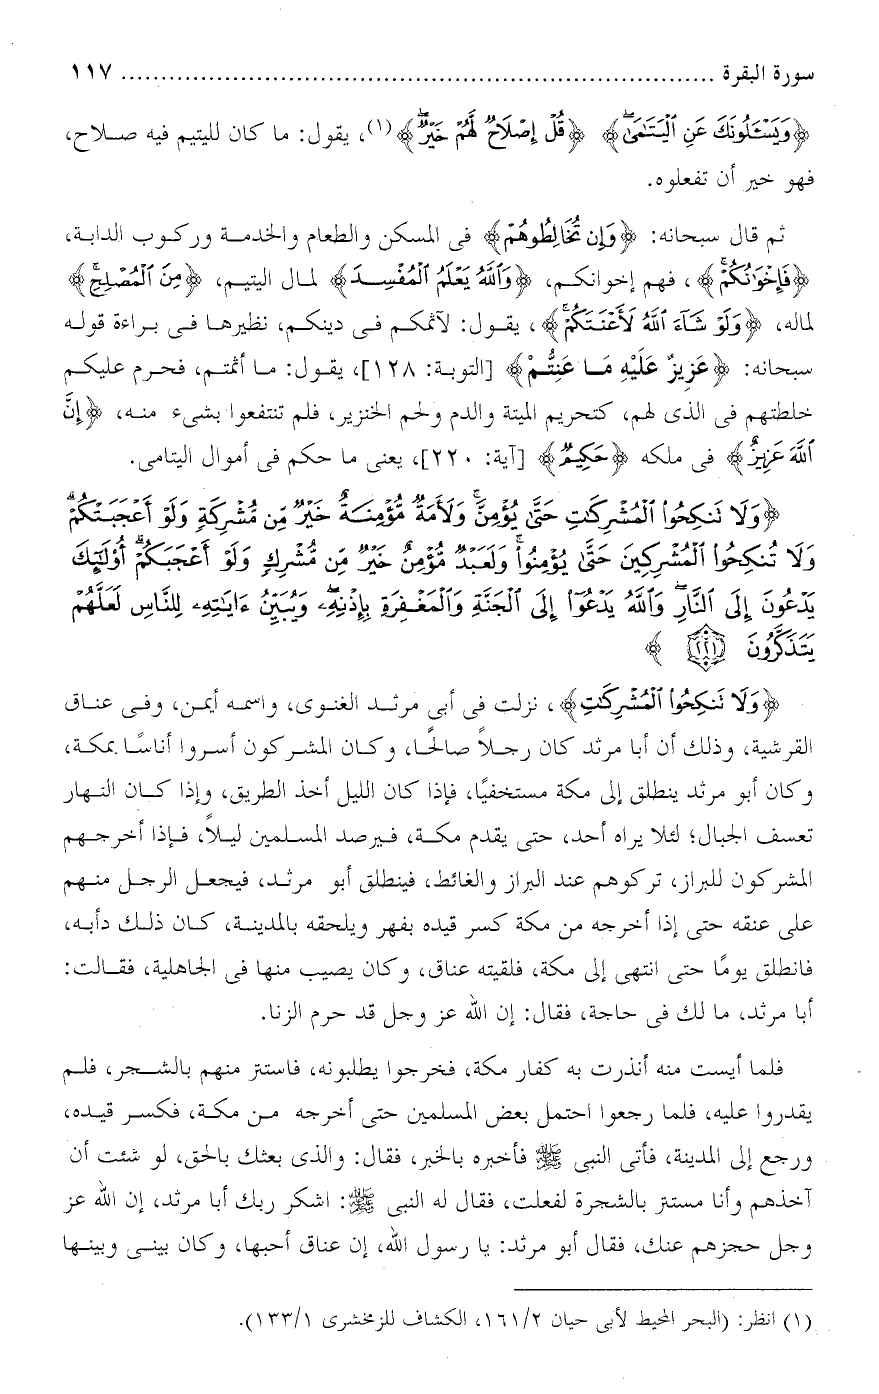 سورة البقرة ........................................................................... ١١٧
﴿وَيَسْـَٔلُونَكَ عَنِ ٱلْيَتَٰمَىٰ﴾ ﴿قُلْ إِصْلَاحٌ لَّهُمْ خَيْرٌ﴾(١)، يقول: ما كان لليتيم فيه صلاح،
فهو خير أن تفعلوه.
ثم قال سبحانه: ﴿وَإِن تُخَالِطُوهُمْ﴾ فى المسكن والطعام والخدمة وركوب الدابة،
﴿فَإِخْوَٰنُكُمْ﴾، فهم إخوانكم، ﴿وَٱللَّهُ يَعْلَمُ ٱلْمُفْسِدَ﴾ لمال اليتيم، ﴿مِنَ ٱلْمُصْلِحِ﴾
لماله، ﴿وَلَوْ شَآءَ ٱللَّهُ لَأَعْنَتَكُمْ﴾، يقول: لآثمكم فى دينكم، نظيرها فى براءة قوله
سبحانه: ﴿عَزِيزٌ عَلَيْهِ مَا عَنِتُّمْ﴾ [التوبة: ١٢٨]، يقول: ما أثمتم، فحرم عليكم
خلطتهم فى الذى لهم، كتحريم الميتة والدم ولحم الخنزير، فلم تنتفعوا بشىء منه، ﴿إِنَّ
ٱللَّهَ عَزِيزٌ﴾ فى ملكه ﴿حَكِيمٌ﴾ [آية: ٢٢٠]، يعنى ما حكم فى أموال اليتامى.
﴿وَلَا تَنكِحُوا۟ ٱلْمُشْرِكَٰتِ حَتَّىٰ يُؤْمِنَّ وَلَأَمَةٌ مُّؤْمِنَةٌ خَيْرٌ مِّن مُّشْرِكَةٍ وَلَوْ أَعْجَبَتْكُمْ
وَلَا تُنكِحُوا۟ ٱلْمُشْرِكِينَ حَتَّىٰ يُؤْمِنُوا۟ وَلَعَبْدٌ مُّؤْمِنٌ خَيْرٌ مِّن مُّشْرِكٍ وَلَوْ أَعْجَبَكُمْ أُو۟لَٰٓئِكَ
يَدْعُونَ إِلَى ٱلنَّارِ وَٱللَّهُ يَدْعُوٓا۟ إِلَى ٱلْجَنَّةِ وَٱلْمَغْفِرَةِ بِإِذْنِهِۦ وَيُبَيِّنُ ءَايَٰتِهِۦ لِلنَّاسِ لَعَلَّهُمْ
يَتَذَكَّرُونَ (٢٢١)﴾
﴿وَلَا تَنكِحُوا۟ ٱلْمُشْرِكَٰتِ﴾، نزلت فى أبى مرثد الغنوى، واسمه أيمن، وفى عناق
القرشية، وذلك أن أبا مرثد كان رجلاً صالحًا، وكان المشركون أسروا أناسًا بمكة،
وكان أبو مرثد ينطلق إلى مكة مستخفيًا، فإذا كان الليل أخذ الطريق، وإذا كان النهار
تعسف الجبال؛ لئلا يراه أحد، حتى يقدم مكة، فيرصد المسلمين ليلاً، فإذا أخرجهم
المشركون للبراز، تركوهم عند البراز والغائط، فينطلق أبو مرثد، فيجعل الرجل منهم
على عنقه حتى إذا أخرجه من مكة كسر قيده بفهر ويلحقه بالمدينة، كان ذلك دأبه،
فانطلق يومًا حتى انتهى إلى مكة، فلقيته عناق، وكان يصيب منها فى الجاهلية، فقالت:
أبا مرثد، ما لك فى حاجة، فقال: إن الله عز وجل قد حرم الزنا.
فلما أيست منه أنذرت به كفار مكة، فخرجوا يطلبونه، فاستتر منهم بالشجر، فلم
يقدروا عليه، فلما رجعوا احتمل بعض المسلمين حتى أخرجه من مكة، فكسر قيده،
ورجع إلى المدينة، فأتى النبى ﷺ فأخبره بالخبر، فقال: والذى بعثك بالحق، لو شئت أن
آخذهم وأنا مستتر بالشجرة لفعلت، فقال له النبى ﷺ: اشكر ربك أبا مرثد، إن الله عز
وجل حجزهم عنك، فقال أبو مرثد: يا رسول الله، إن عناق أحبها، وكان بينى وبينها
(١) انظر: (البحر المحيط لأبى حيان ١٦١/٢، الكشاف للزمخشرى ١٣٣/١).